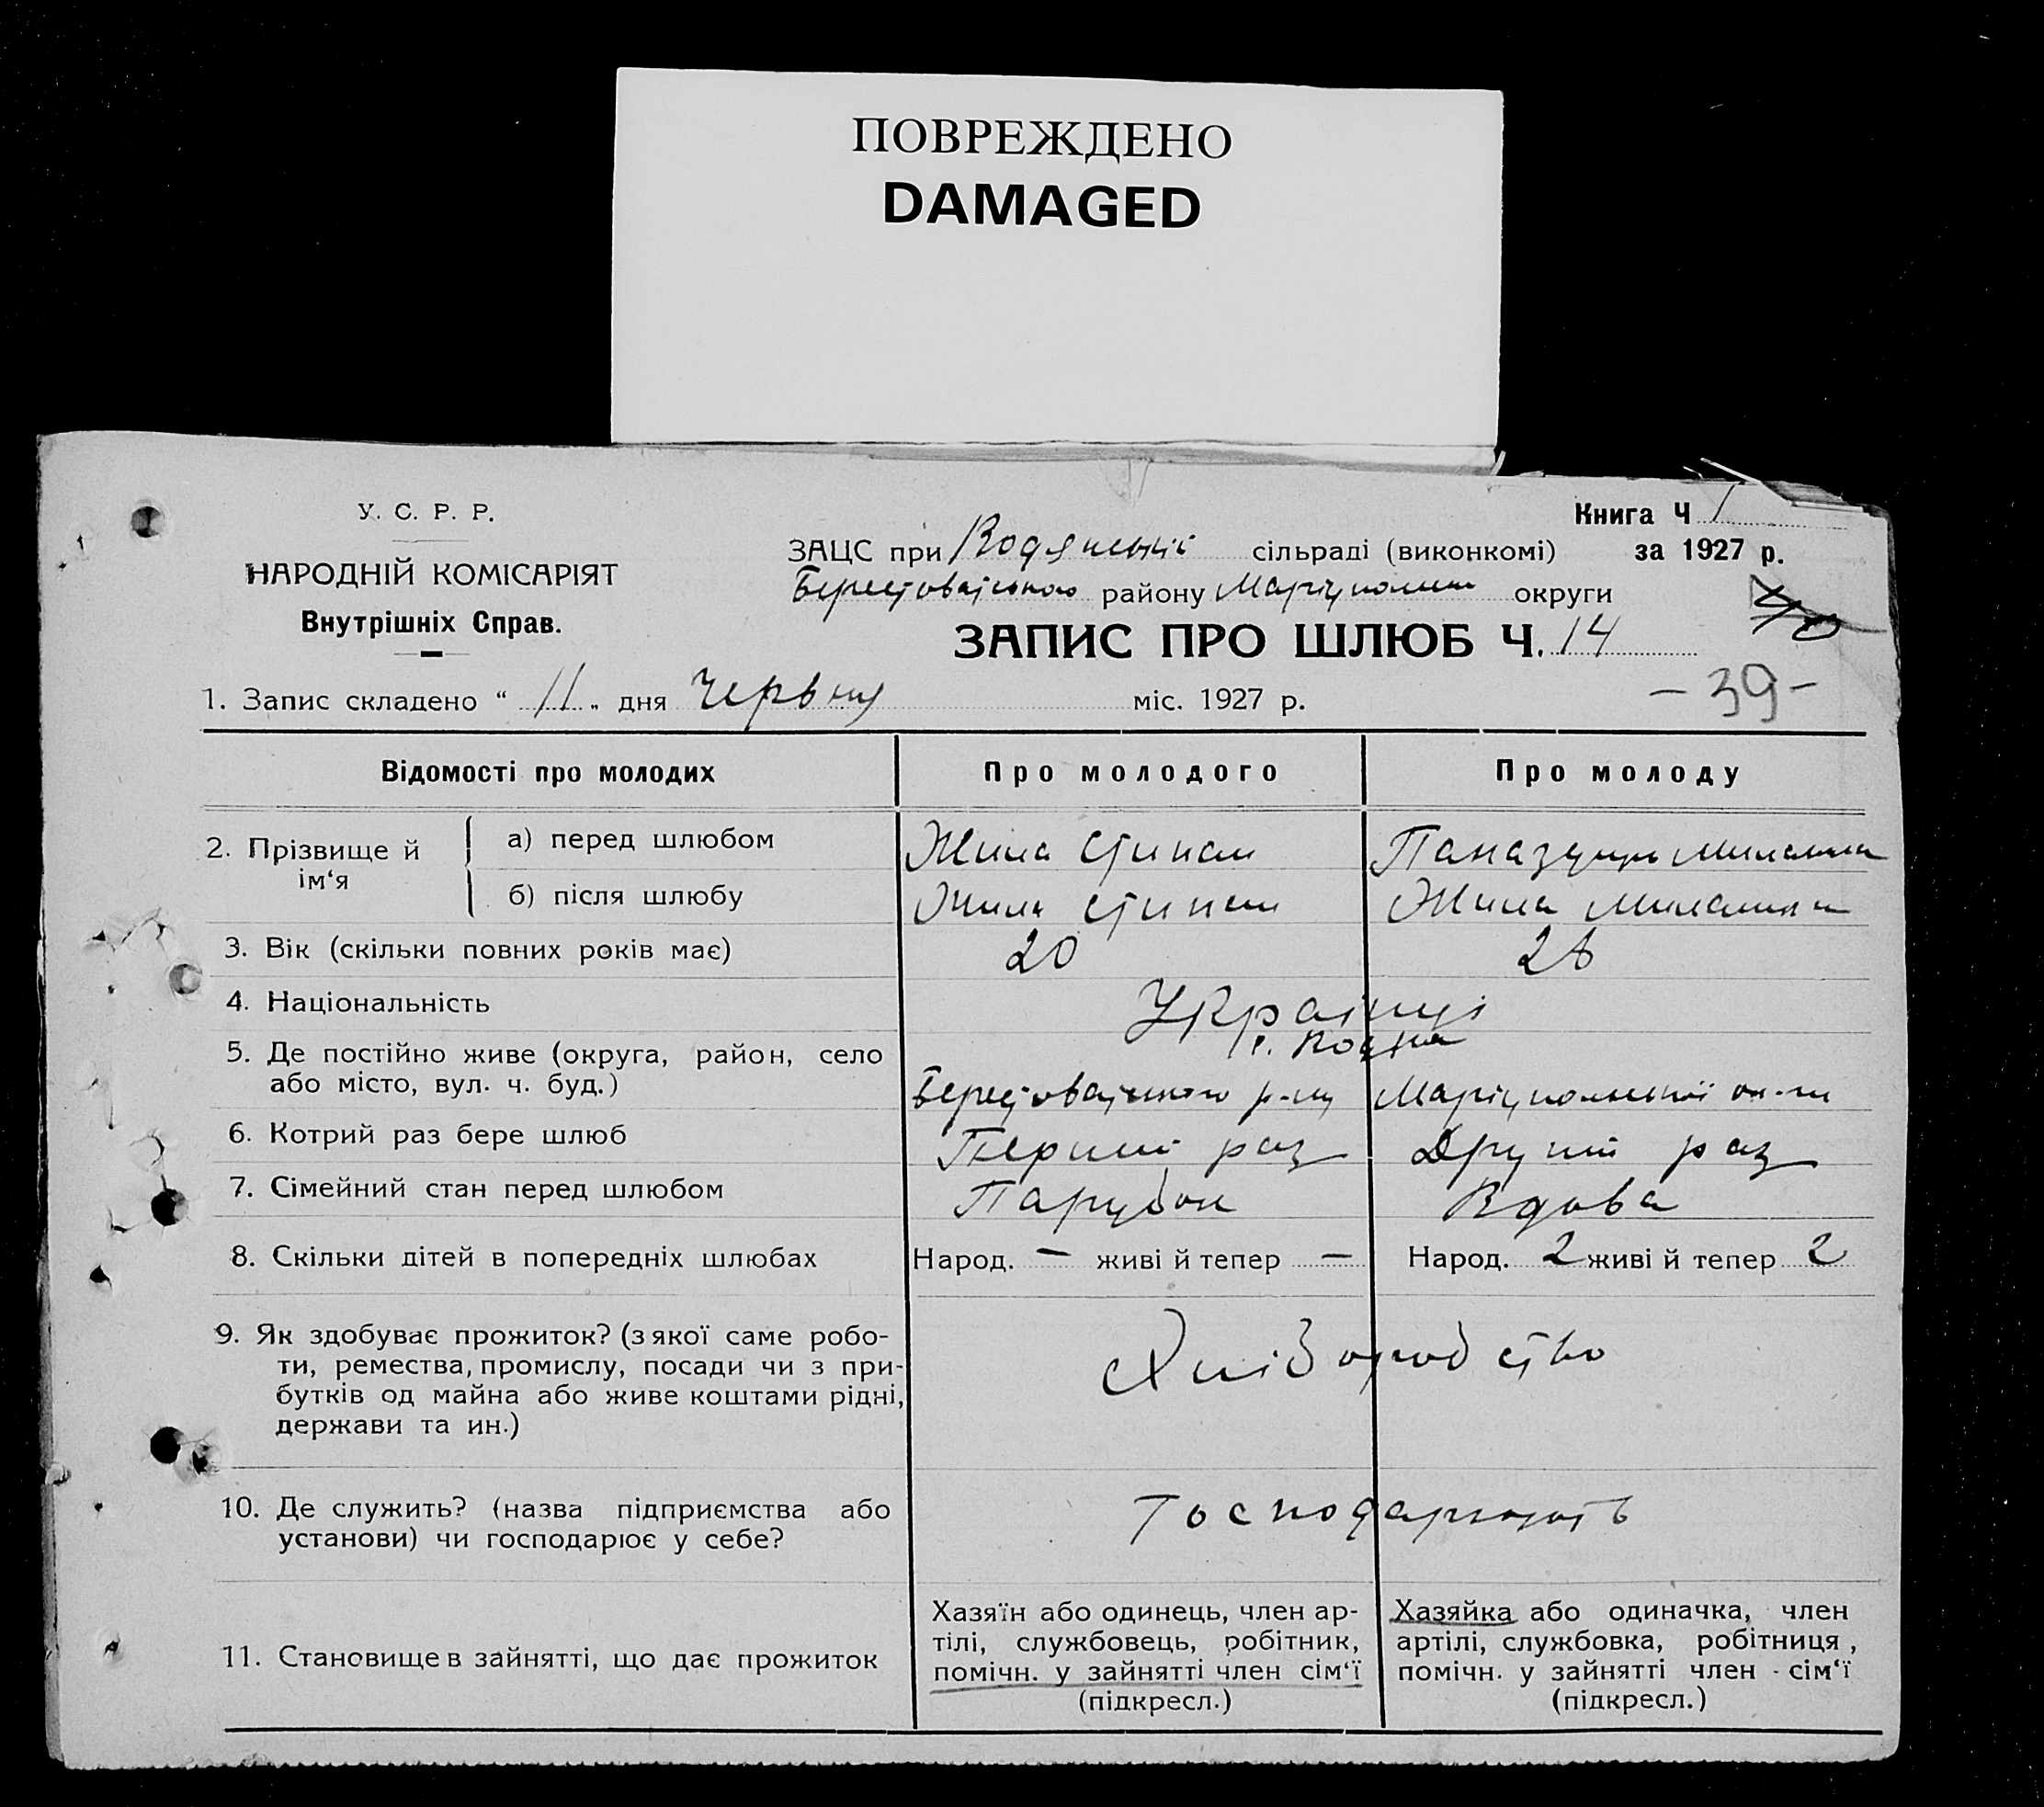 ПОВРЕЖДЕНО
DAMAGED
У. С. Р. Р.
НАРОДНІЙ КОМІСАРІЯТ
Внутрішніх Справ.
Книга Ч 1
ЗАЦС при Водянській сільраді (виконкомі) за 1927 р.
Берестоватського району Маріупольськ округи
ЗАПИС ПРО ШЛЮБ Ч. 14
1. Запис складено “ 11 „ дня червня міс. 1927 р.
– 39 –
Відомості про молодих Про молодого Про молоду
2. Прізвище й ім‘я
а) перед шлюбом Жила Степан
б) після шлюбу Жила Степан Жила
3. Вік (скільки повних років має) 20 28
4. Національність Українці
5. Де постійно живе (округа, район, село або місто, вул. ч. буд.)
с. Водяна
Берестоватського р-ну Маріупольської ок-ги
6. Котрий раз бере шлюб Перший раз Другий раз
7. Сімейний стан перед шлюбом Парубок Вдова
8. Скільки дітей в попередніх шлюбах Народ. – живі й тепер – Народ. 2 живі й тепер 2
9. Як здобуває прожиток? (з якої саме робо-
ти, ремества, промислу, посади чи з при-
бутків од майна або живе коштами рідні,
держави та ин.)
Хліборобство
10. Де служить? (назва підприємства або
установи) чи господарює у себе?
Господарюють
11. Становище в зайнятті, що дає прожиток
Хазяїн або одинець, член ар-
тілі, службовець, робітник,
помічн. у зайнятті член сім‘ї
(підкресл.)
Хазяйка або одиначка, член
артілі, службовка, робітниця,
помічн. у зайнятті член сім‘ї
(підкресл.)